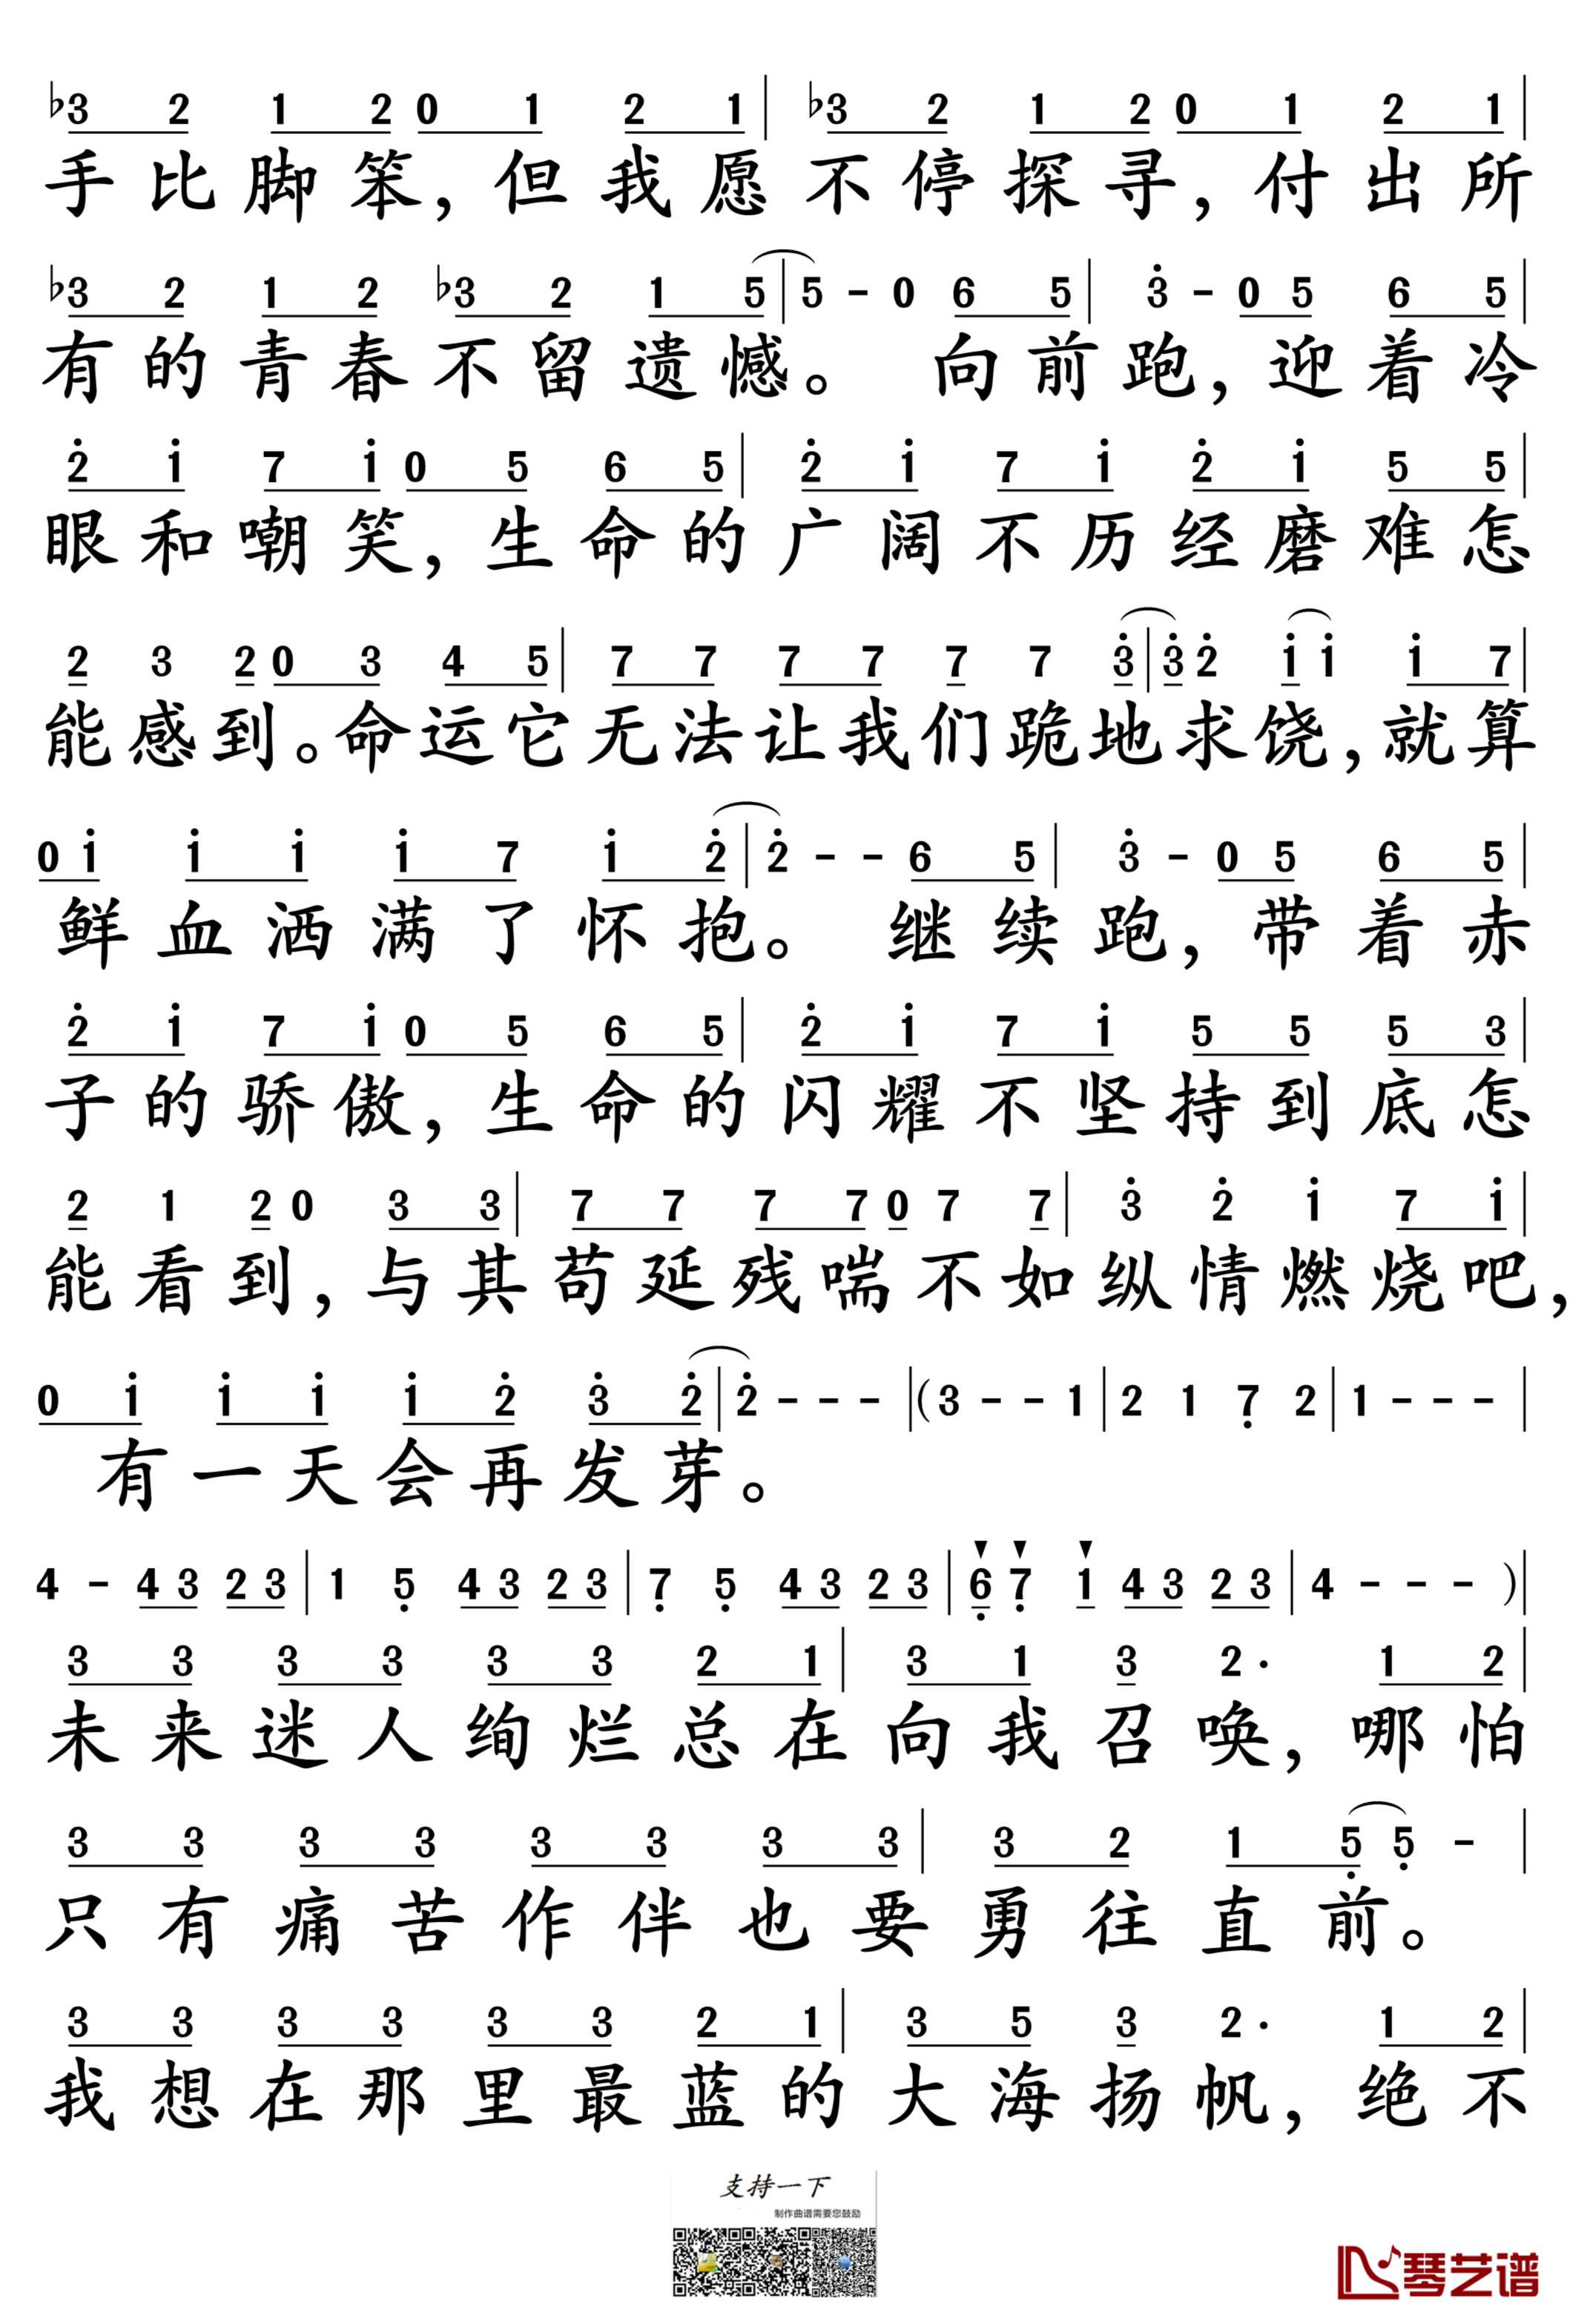 ♭3 2 1 2 0 1 2 1 | ♭3 2 1 2 0 1 2 1 |
手比脚笨，但我愿不停探寻，付出所
♭3 2 1 2 ♭3 2 1 5 | 5 - 0 6 5 | 3̇ - 0 5 6 5 |
有的青春不留遗憾。 向前跑，迎着冷
2̇ 1̇ 7 1̇ 0 5 6 5 | 2̇ 1̇ 7 1̇ 2̇ 1̇ 5 5 |
眼和嘲笑，生命的广阔不历经磨难怎
2 3 2 0 3 4 5 | 7 7 7 7 7 7 3̇ | 3̇ 2̇ 1̇ 1̇ 1̇ 7 |
能感到。命运它无法让我们跪地求饶，就算
0 1̇ 1̇ 1̇ 1̇ 7 1̇ 2̇ | 2̇ - - 6 5 | 3̇ - 0 5 6 5 |
鲜血洒满了怀抱。 继续跑，带着赤
2̇ 1̇ 7 1̇ 0 5 6 5 | 2̇ 1̇ 7 1̇ 5 5 5 3 |
子的骄傲，生命的闪耀不坚持到底怎
2 1 2 0 3 3 | 7 7 7 7 0 7 7 | 3̇ 2̇ 1̇ 7 1̇ |
能看到，与其苟延残喘不如纵情燃烧吧，
0 1̇ 1̇ 1̇ 1̇ 2̇ 3̇ 2̇ | 2̇ - - - | (3 - - 1 | 2 1 7̣ 2 | 1 - - - |
有一天会再发芽。
4 - 4 3 2 3 | 1 5̣ 4 3 2 3 | 7̣ 5̣ 4 3 2 3 | 6̣ 7̣ 1 4 3 2 3 | 4 - - - ) |
3 3 3 3 3 3 2 1 | 3 1 3 2· 1 2 |
未来迷人绚烂总在向我召唤，哪怕
3 3 3 3 3 3 3 3 | 3 2 1 5̣ 5̣ - |
只有痛苦作伴也要勇往直前。
3 3 3 3 3 3 2 1 | 3 5 3 2· 1 2 |
我想在那里最蓝的大海扬帆，绝不
支持一下
制作曲谱需要您鼓励
琴艺谱